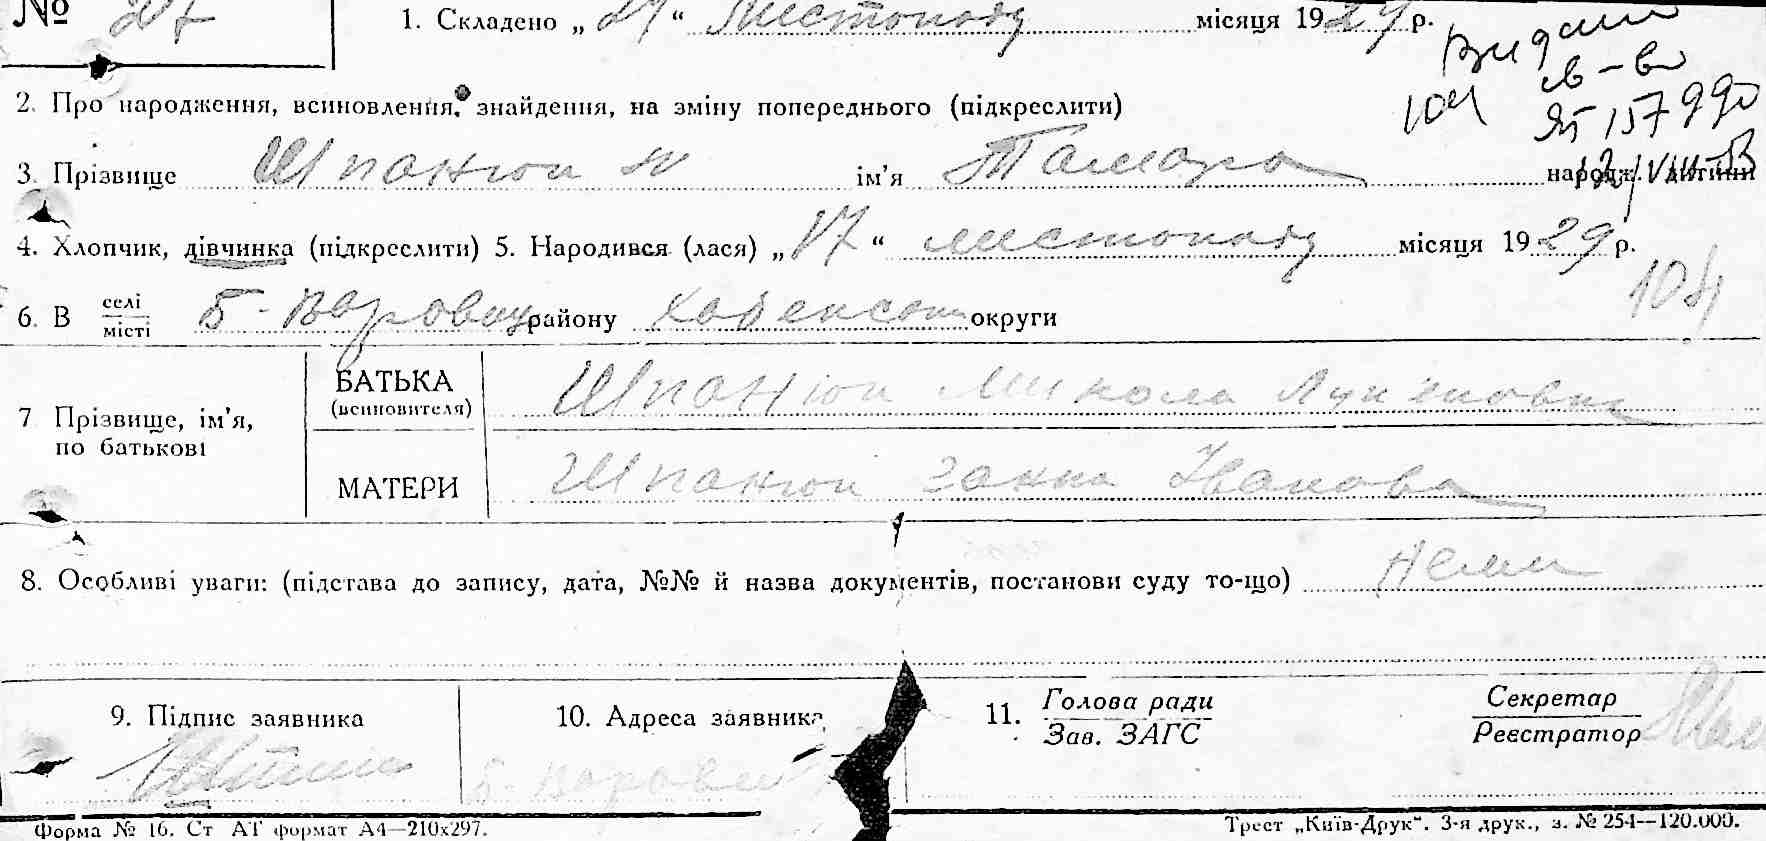 № 207
1. Складено „27“ Листопаду місяця 1929 р.
Видат
св-во
104 ЯБ 157990
2. Про народження, всиновлення, знайдення, на зміну попереднього (підкреслити)
3. Прізвище Шпанюк ім'я Тамара народж. дитини
4. Хлопчик, дівчинка (підкреслити) 5. Народився (лася) „17“ листопаду місяця 1929 р.
104
6. В селі/місті Б-Варовци району Хабенськ округи
7 Прізвище, ім'я, по батькові
БАТЬКА (всиновителя) Шпанюк Микола Лук'янович
МАТЕРИ Шпанюк Ганна Іванова
8. Особливі уваги: (підстава до запису, дата, №№ й назва документів, постанови суду то-що) Нема
9. Підпис заявника
10. Адреса заявника
Б-Варовци
11. Голова ради Секретар
Зав. ЗАГС Реєстратор
Форма № 16. Ст АТ формат А4—210х297.
Трест „Київ-Друк“. 3-я друк., з. № 254—120.000.